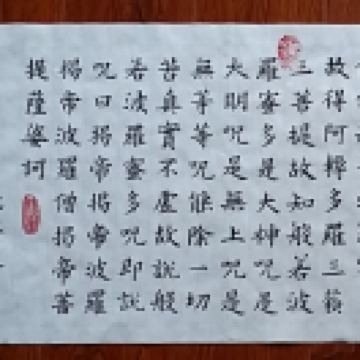 故得阿耨多羅三藐
三菩提故知般若波
羅蜜多是大神咒是
大明咒是無上咒是
無等等咒能除一切
苦真實不虛故說般
若波羅蜜多咒即說
咒曰揭帝揭帝波羅
揭帝波羅僧揭帝菩
提薩婆訶